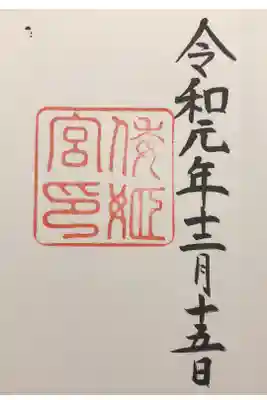 令和元年十二月十五日
倭姫
宮印